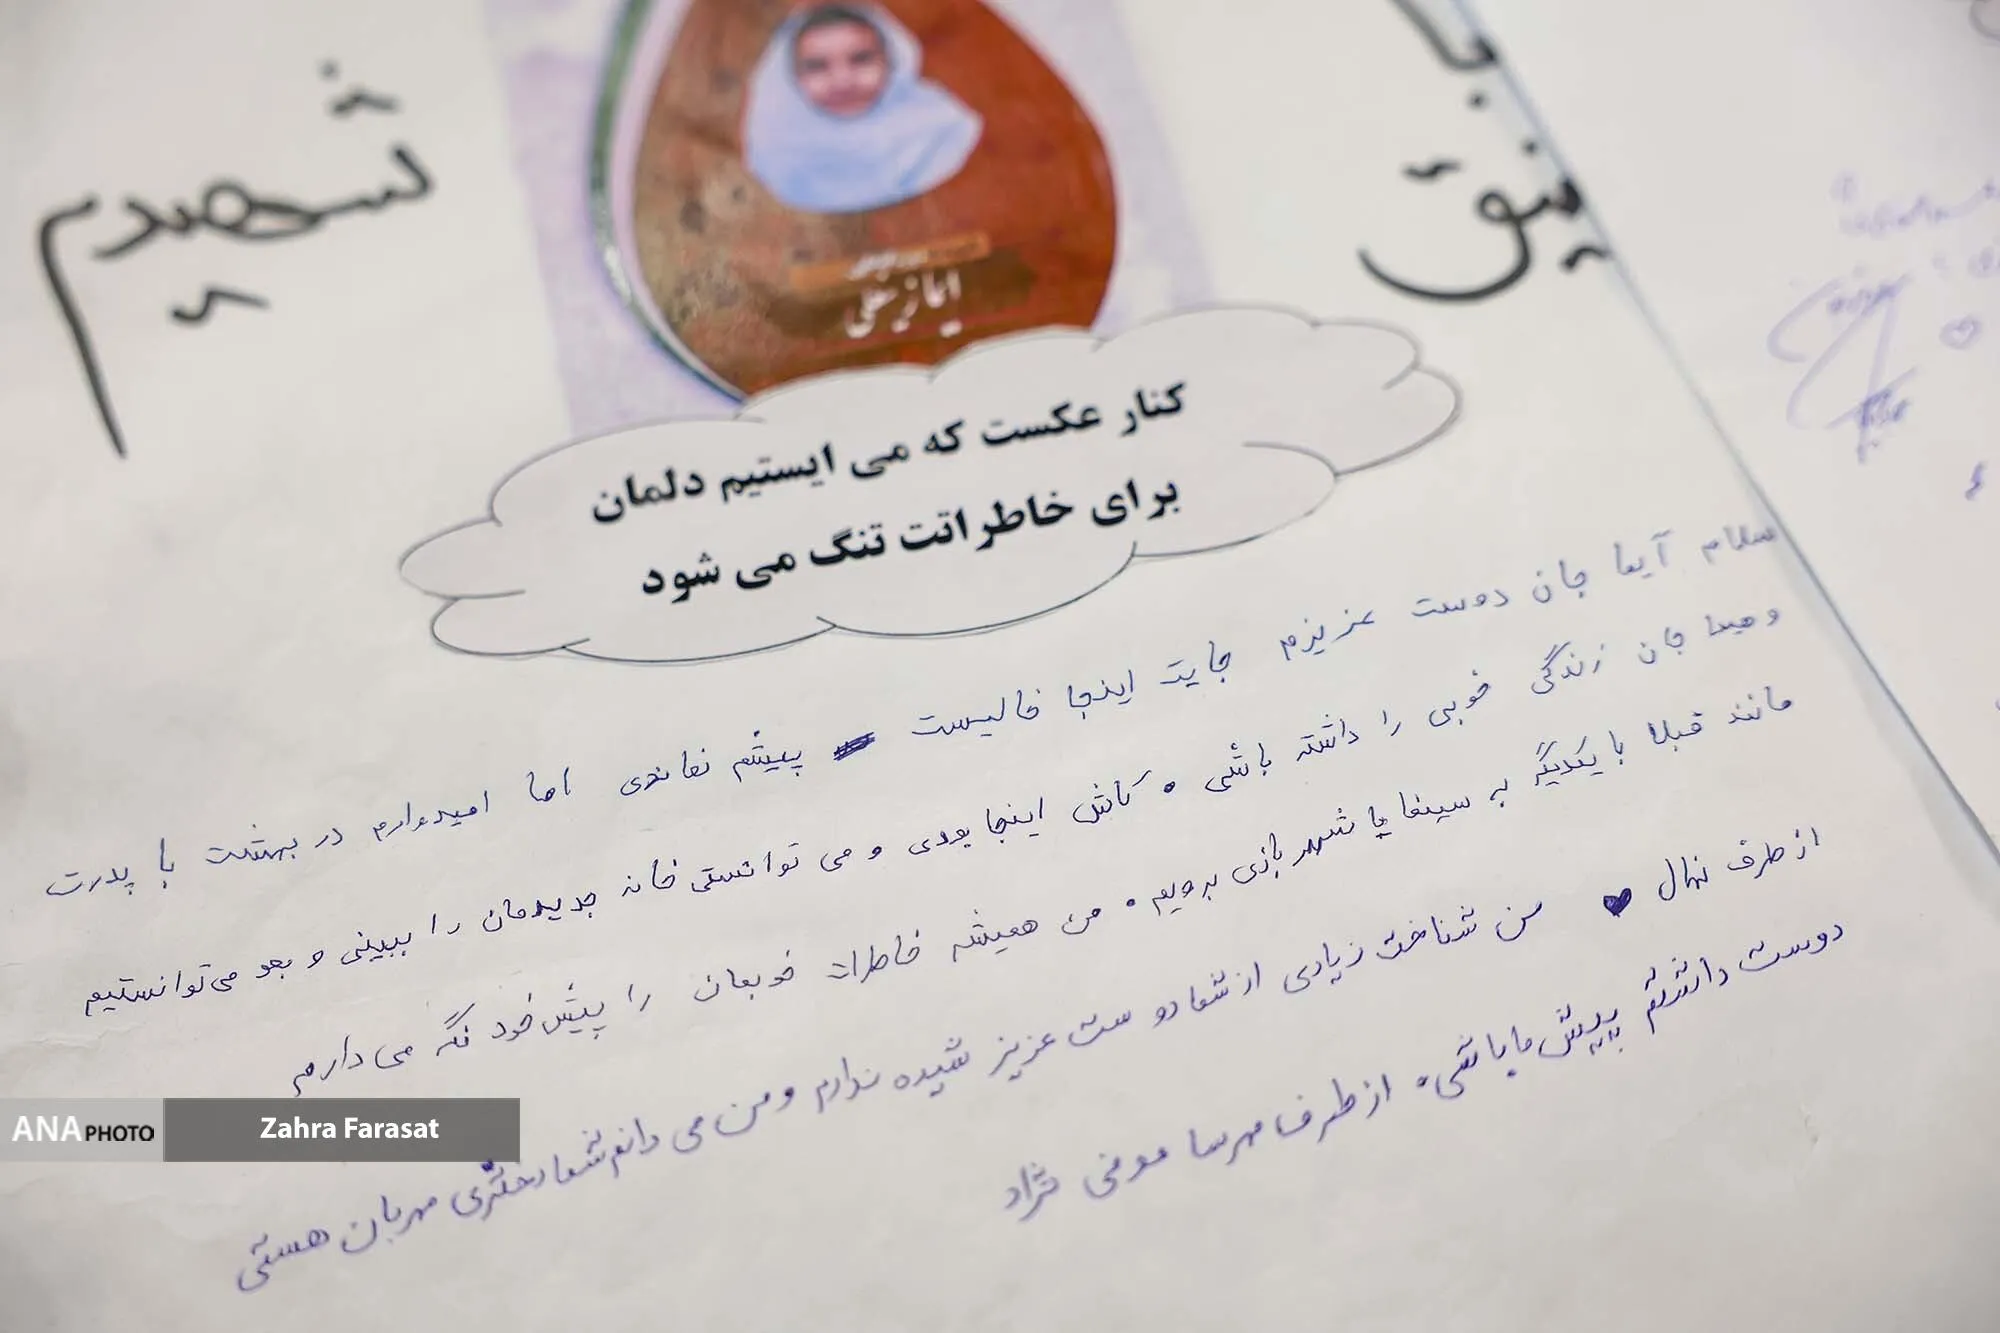 شهیدم
کنار عکست که می ایستیم دلمان
برای خاطراتت تنگ می شود
سلام آیما جان دوست عزیزم جایت اینجا خالیست پیشم نماندی اما امیدوارم در بهشت با پدرت
و جان زندگی خوبی را داشته باشی . کاش اینجا بودی و می توانستی خانه جدیدمان را ببینی و بعد می توانستیم
مانند قبلا با یکدیگر به سینما یا شهر بازی برویم . من همیشه خاطرات خوبمان را پیش خود نگه می دارم
از طرف نهال ♥ من شناخت زیادی از شما دوست عزیز شیده ندارم و من می دانم شما دختری مهربان هستی
دوست داشتم پیش ما باشی . از طرف مهرسا مومنی نژاد
ANA PHOTO
Zahra Farasat